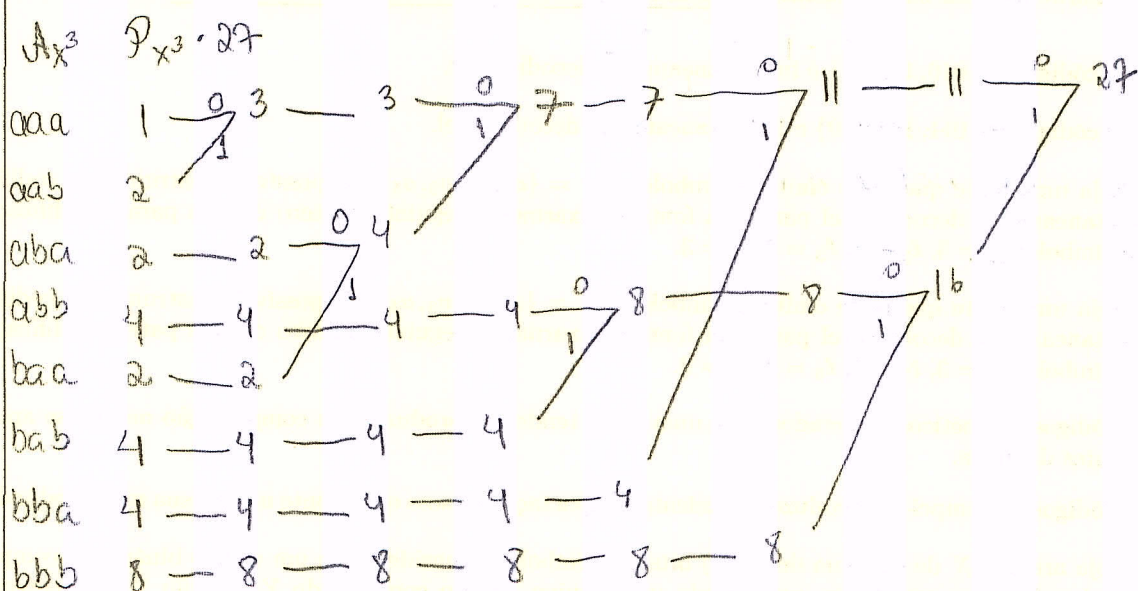 A_X³ P_X³ · 27
aaa 1 0 3 3 0 7 7 0 11 11 0 27
1 1 1 1
aab 2
aba 2 2 0 4
abb 4 4 1 4 4 0 8 8 0 16
baa 2 2 1 1
bab 4 4 4 4
bba 4 4 4 4 4
bbb 8 8 8 8 8 8